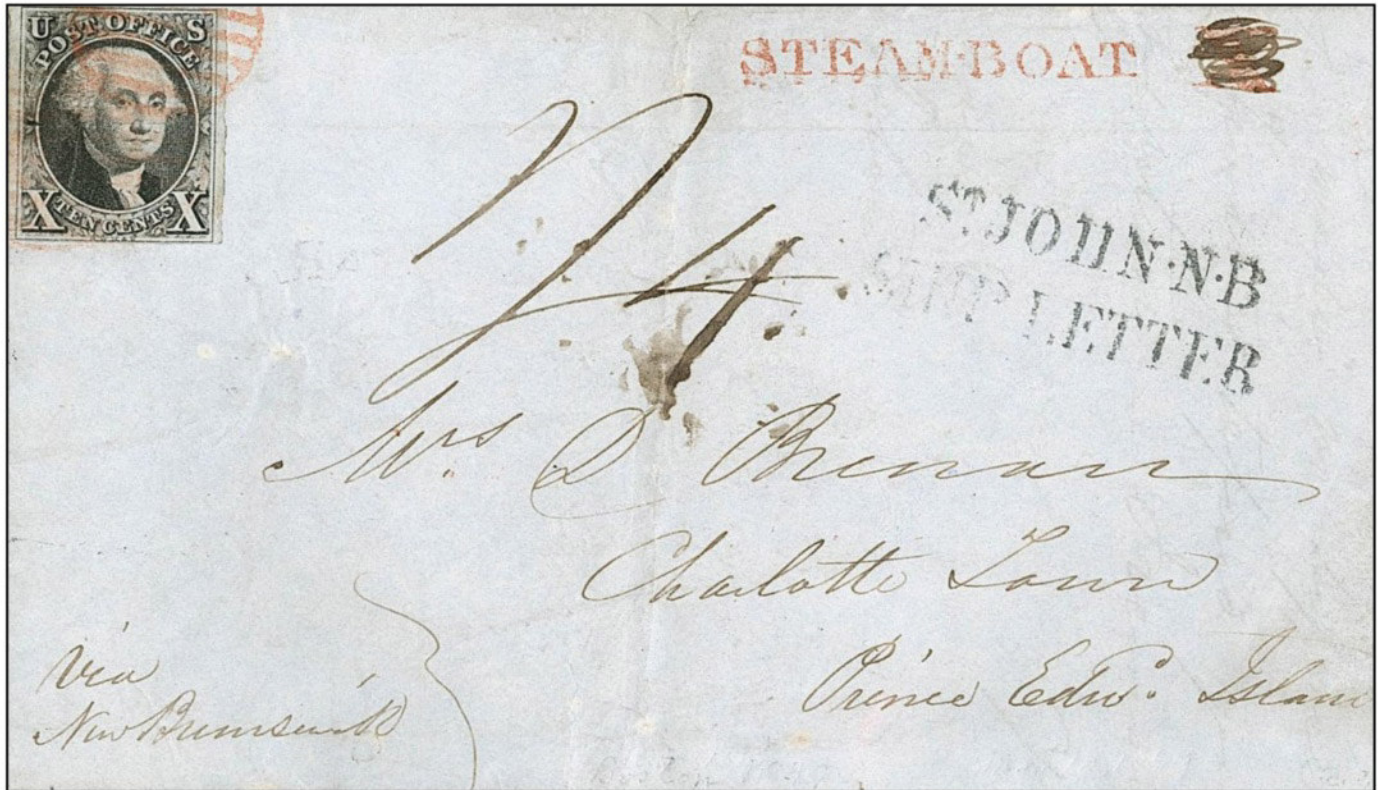 U S
POST OFFICE
X TEN CENTS X
STEAM·BOAT
ST JOHN·N·B
SHIP LETTER
Mrs D Brenan
Charlotte Town
Prince Edwd. Islan
via
New Brunswick